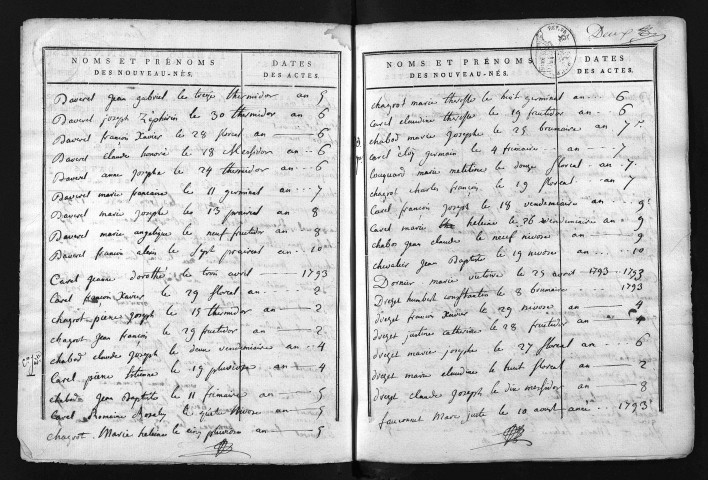 NOMS ET PRÉNOMS
DES NOUVEAU-NÉS.
DATES
DES ACTES.
Daverel jean gabriel le treize thermidor an 5
Daverel joseph Zéphirin le 30 thermidor an 6
Daverel francois Xavier le 28 floreal an 6
Daverel claude honoré le 18 Messidor an 6
Daverel anne josephe le 24 thermidor an 6
Daverel marie francoise le 11 germinal an 7
Daverel marie josephe le 13 prairial an 8
Daverel marie angelique le neuf fructidor an 8
Daverel francois alexis le sept prairial an 10
Carel jeanne dorothé le trois avril 1793
Carel francois Xavier le 29 floreal an 2
chagrot pierre joseph le 15 thermidor an 2
chagrot jean francois le 29 fructidor an 2
chabod claude joseph le deux vendemiaire an 4
Carel pierre Etienne le 19 pluviose an 4
chabod jean Baptiste le 11 frimaire an 5
Carel Romaine Rosaly le quatre Nivose an 5
chagrot Marie heleine le cinq pluviose an 5
Deux
NOMS ET PRÉNOMS
DES NOUVEAU-NÉS.
DATES
DES ACTES.
chagrot marie therese le huit germinal an 6
Carel claudine therese le 19 fructidor an 6
chabod marie josephe le 25 brumaire an 7
Carel éloy germain le 4 frimaire an 7
marie le douze floreal an 7
chagrot charles francois le 19 floreal an 7
Carel francois joseph le 18 vendemiaire an 9
Carel marie heleine le 26 vendemiaire an 9
chabos jean claude le neuf nivose an 9
chevalier jean Baptiste le 19 nivose an 10
Dornier marie victoire le 25 avril 1793 1793
humbert constantin le 8 brumaire 1793
francois Xavier le 29 nivose an 4
justine catherine le 28 fructidor an 4
marie josephe le 27 floreal an 6
marie claudine le huit floreal an 2
claude joseph le dix messidor an 8
fauconnet Marie juste le 10 aout année 1793